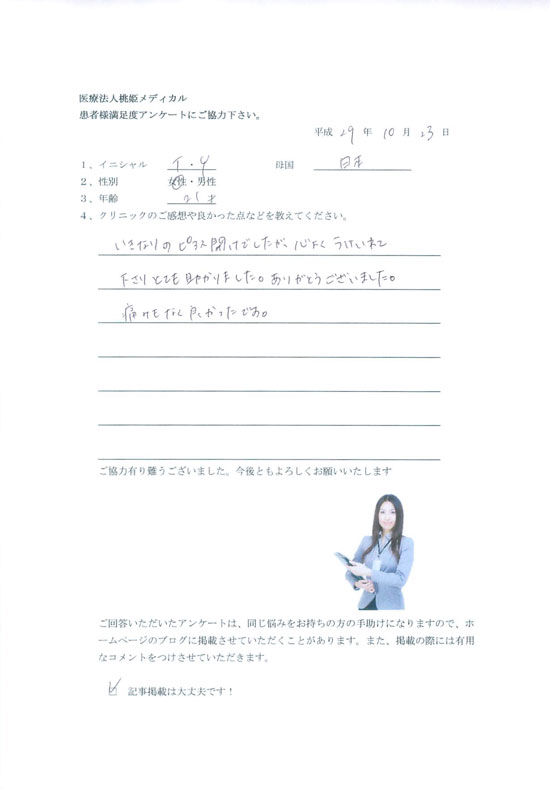 医療法人桃姫メディカル
患者様満足度アンケートにご協力下さい。
平成 29 年 10 月 23 日
1、イニシャル I・Y 母国 日本
2、性別 女性・男性
3、年齢 才
4、クリニックのご感想や良かった点などを教えてください。
いきなりのピアス開けでしたが、心よくうけいれて
下さりとても助かりました。ありがとうございました。
痛みもなく良かったです。
ご協力有り難うございました。今後ともよろしくお願いいたします
ご回答いただいたアンケートは、同じ悩みをお持ちの方の手助けになりますので、ホ
ームページのブログに掲載させていただくことがあります。また、掲載の際には有用
なコメントをつけさせていただきます。
記事掲載は大丈夫です！